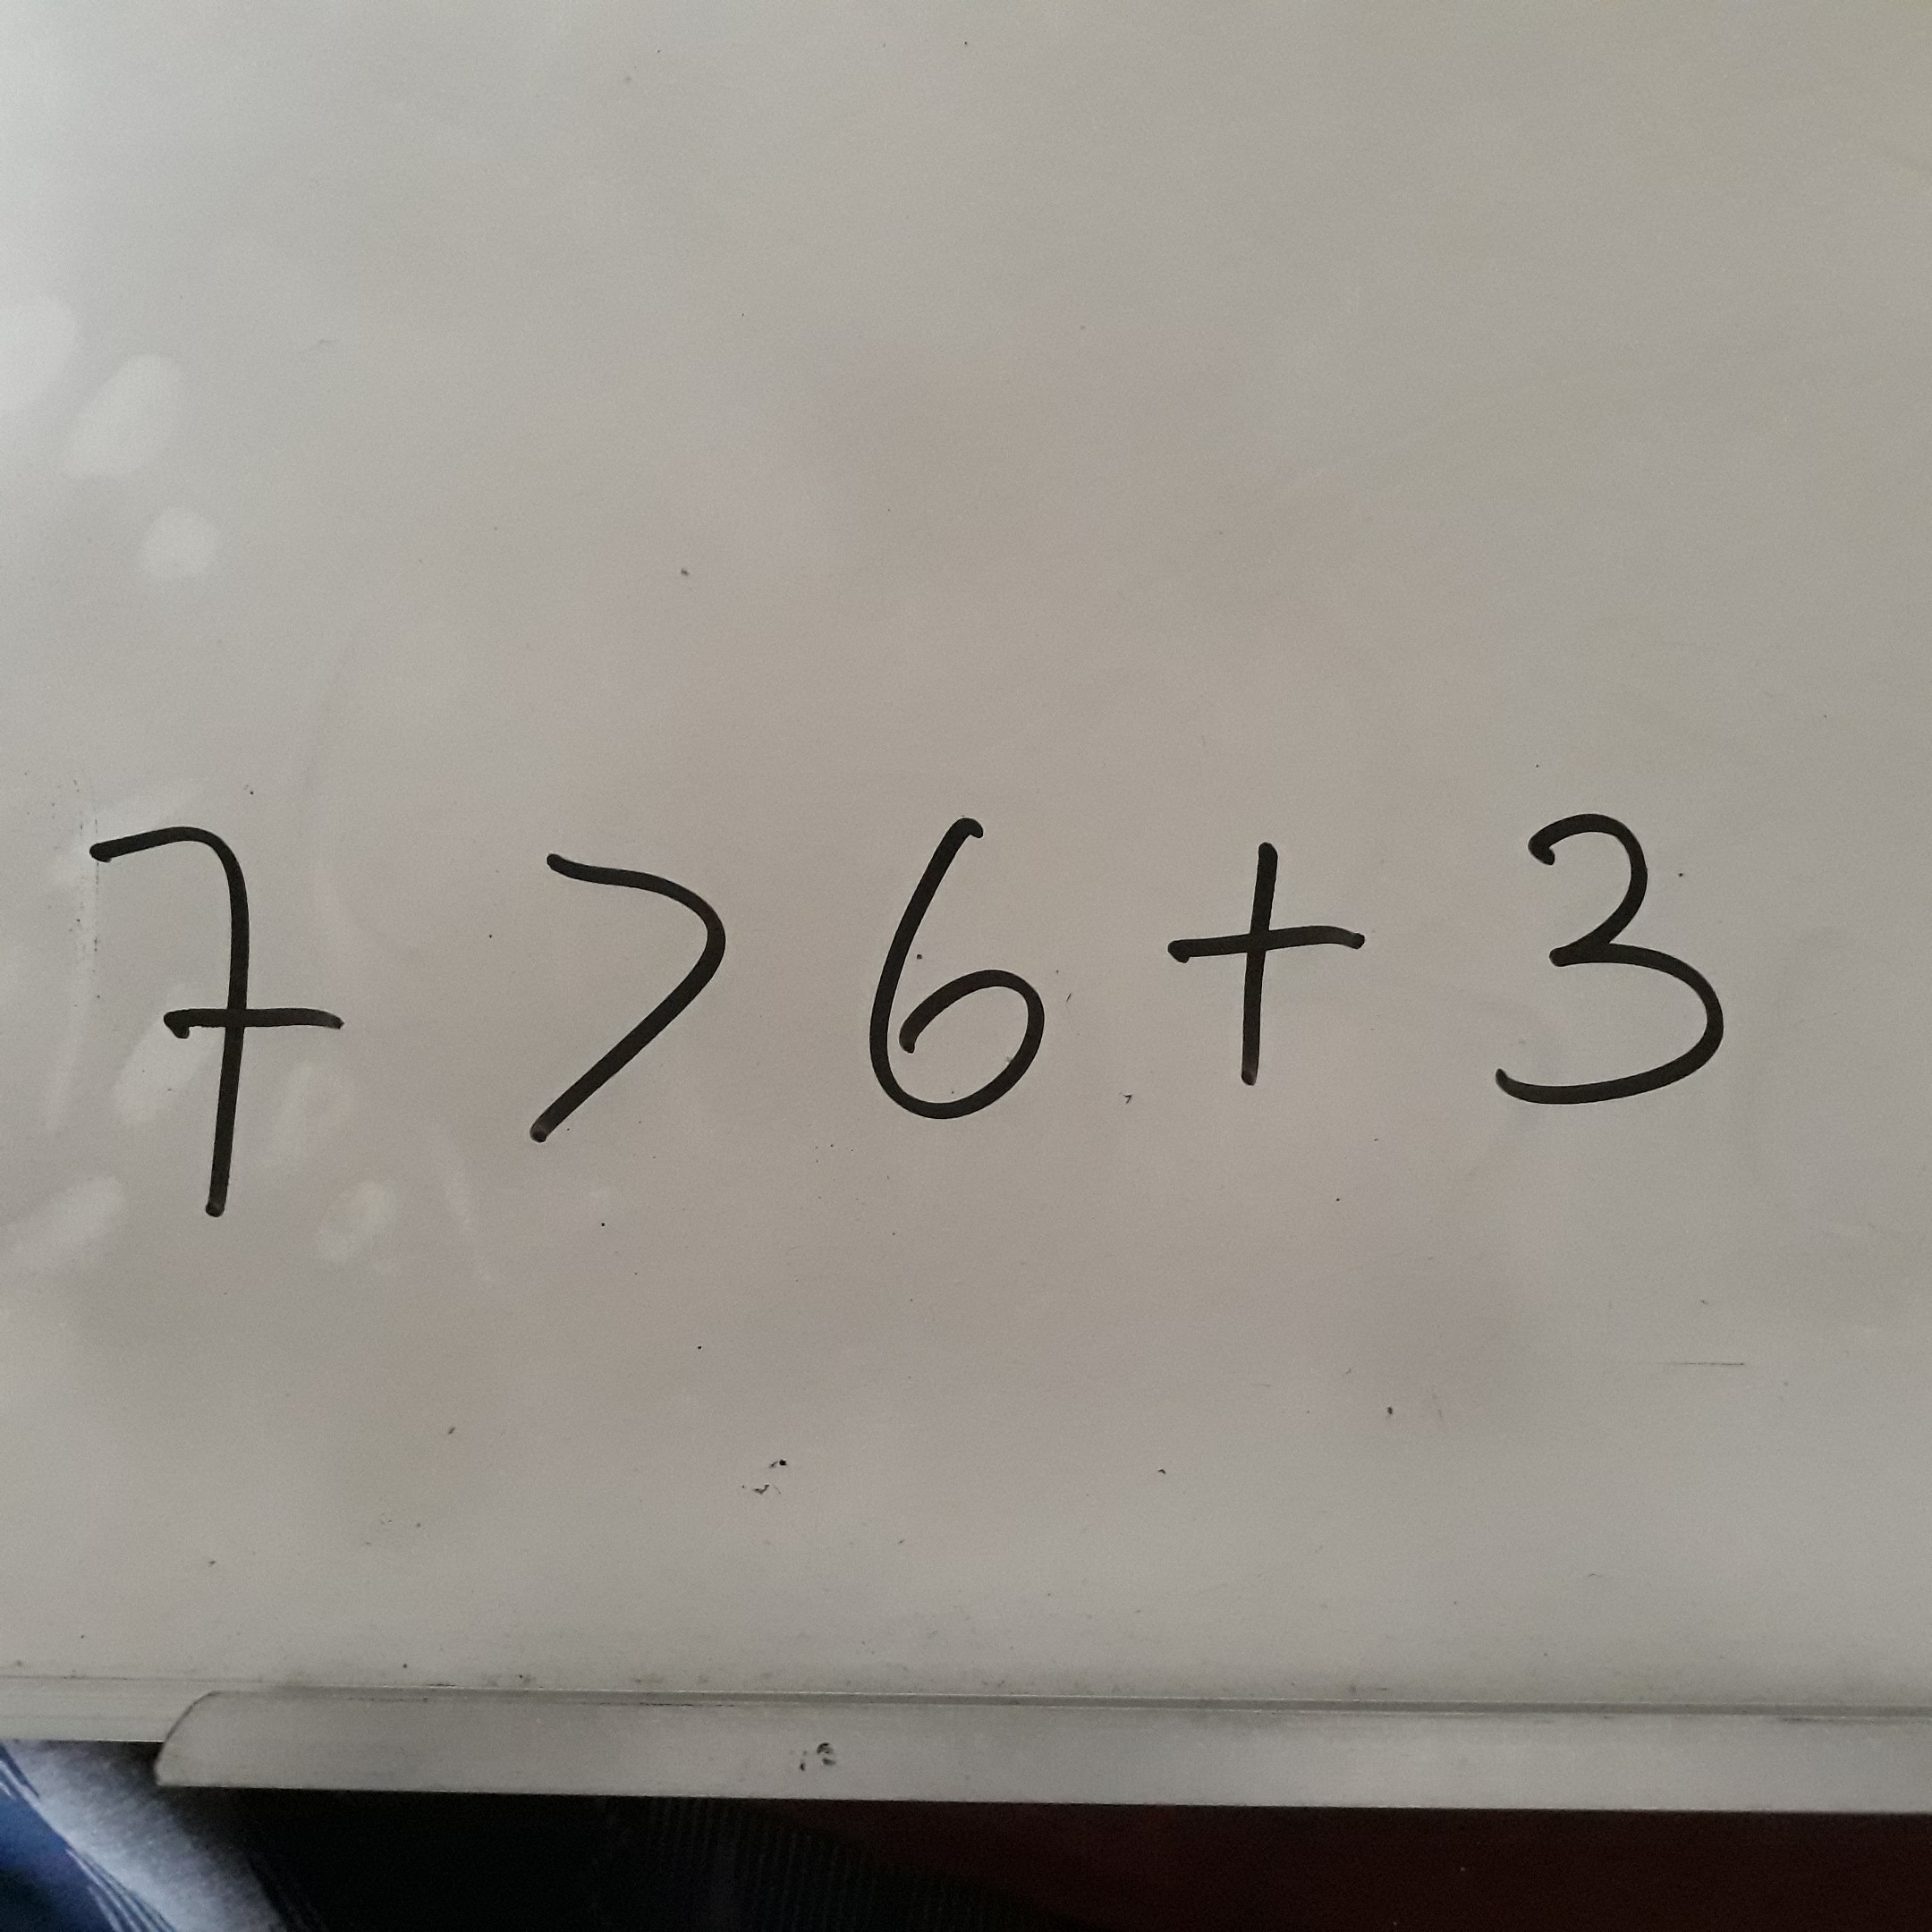 7 > 6 + 3